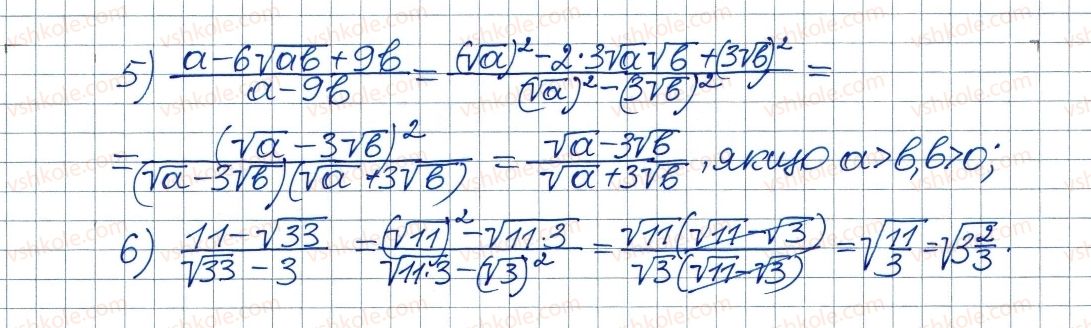 5) (a-6√(ab)+9b)/(a-9b) = ((√a)²-2·3√a√b+(3√b)²)/((√a)²-(3√b)²) =
= (√a-3√b)²/((√a-3√b)(√a+3√b)) = (√a-3√b)/(√a+3√b), якщо a>b, b>0;
6) (11-√33)/(√33-3) = ((√11)²-√(11·3))/(√(11·3)-(√3)²) = (√11(√11-√3))/(√3(√11-√3)) = √(11/3) = √(3 2/3).